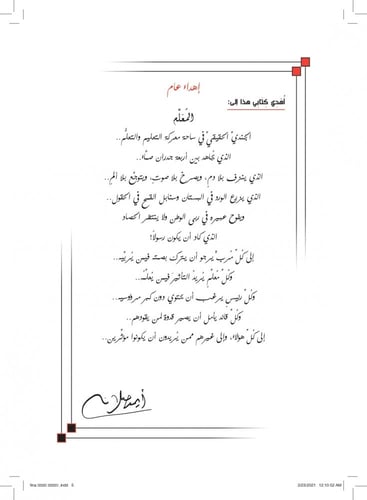 إهداء عام
أهدي كتابي هذا إلى:
المُعَلِّم
الجنديّ الحقيقيّ في ساحة معركة التعليم والتعلّم..
الذي يجاهد بين أربعة جدران صمّاء..
الذي ينزف بلا دمٍ، ويصرخ بلا صوتٍ، ويتوجّع بلا ألم..
الذي يزرع الورد في البستان وسنابل القمح في الحقول..
ويفوح عبيره في ربى الوطن ولا ينتظر الحصاد
الذي كاد أن يكون رسولاً!
إلى كلّ مُربٍّ يرجو أن يترك بصمته فيمن يُربّيه..
وكلّ معلّم يُريدُ التأثير فيمن يُعلّمه..
وكلّ رئيس يرغب أن يحتوي دون كبر مرؤوسيه..
وكلّ قائد يأمل أن يصير قدوة لمن يقودهم..
إلى كلّ هؤلاء، وإلى غيرهم ممن يُريدون أن يكونوا مؤثّرين..
5
2/23/2021 12:10:52 AM